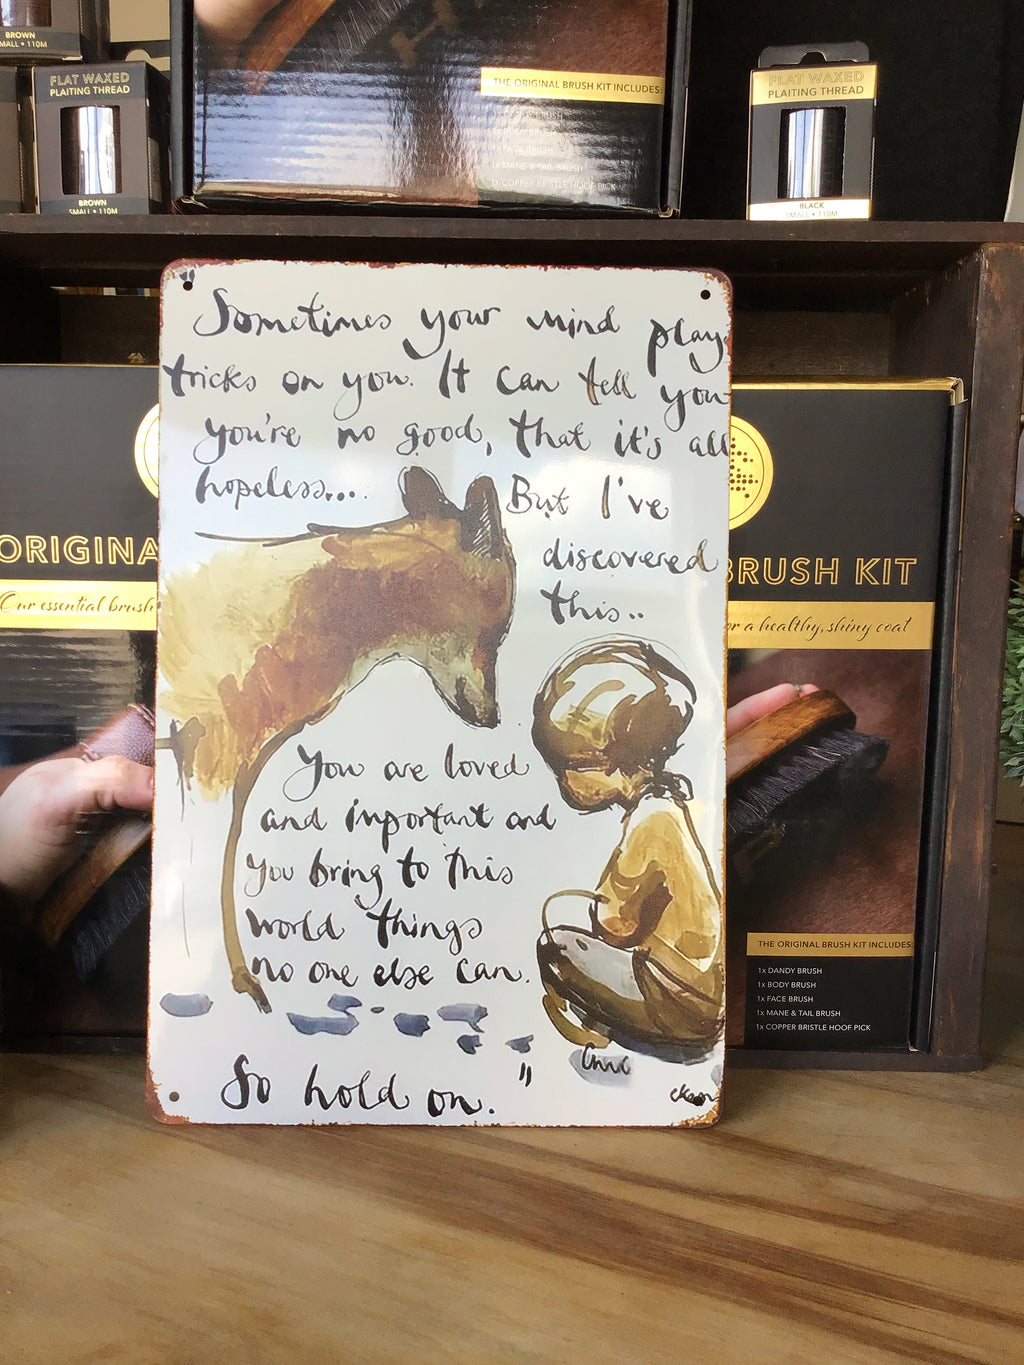 BROWN
SMALL • 110M
FLAT WAXED
PLAITING THREAD
BROWN
SMALL • 110M
THE ORIGINAL BRUSH KIT INCLUDES:
1x BODY BRUSH
1x FACE BRUSH
1x MANE & TAIL BRUSH
1x COPPER BRISTLE HOOF PICK
FLAT WAXED
PLAITING THREAD
BLACK
SMALL • 110M
"Sometimes your mind plays
tricks on you. It can tell you
you're no good, that it's all
hopeless.... But I've
discovered
this..
You are loved
and important and
you bring to this
world things
no one else can.
So hold on."
ORIGINA
Our essential brush
BRUSH KIT
or a healthy, shiny coat
THE ORIGINAL BRUSH KIT INCLUDES:
1x DANDY BRUSH
1x BODY BRUSH
1x FACE BRUSH
1x MANE & TAIL BRUSH
1x COPPER BRISTLE HOOF PICK